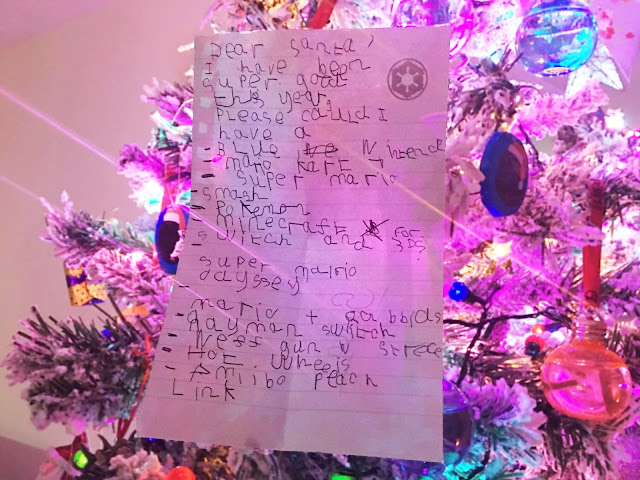 Dear Santa,
I have been
super good
this year.
Please could I
have a
- Blue Nintend
- mario kart 7
- super mario
smash
- Pokemon
- Minecraft for
switch and 3DS?
- super mario
odyssey
- mario + rabbids
- Rayman switch
- Nerf gun
- Hot wheels
- Amiibo Peach
Link